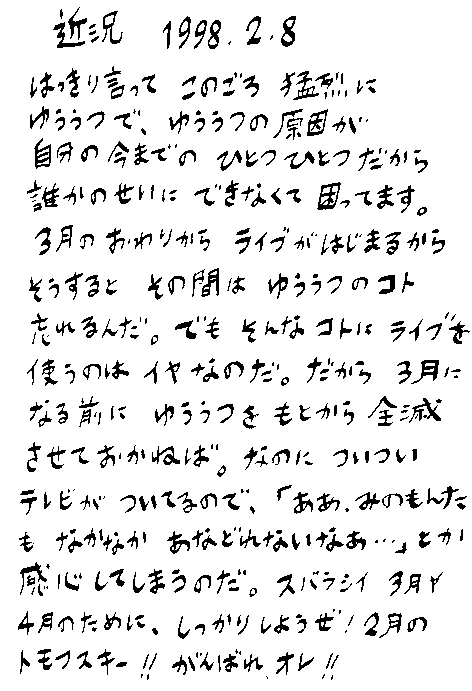 近況 1998.2.8
はっきり言って このごろ 猛烈に
ゆううつで、ゆううつの原因が
自分の今までの ひとつひとつだから
誰かのせいに できなくて 困ってます。
3月の おわりから ライブがはじまるから
そうすると その間は ゆううつのコト
忘れるんだ。でも そんなコトに ライブを
使うのは イヤなのだ。だから 3月に
なる前に ゆううつを もとから 全滅
させておかねば。なのに ついつい
テレビが ついてるので、「ああ、みのもんた
も なかなか あなどれないなぁ…」とか
感心してしまうのだ。スバラシイ 3月や
4月のために、しっかりしようぜ!2月の
トモフスキー!! がんばれ、オレ!!